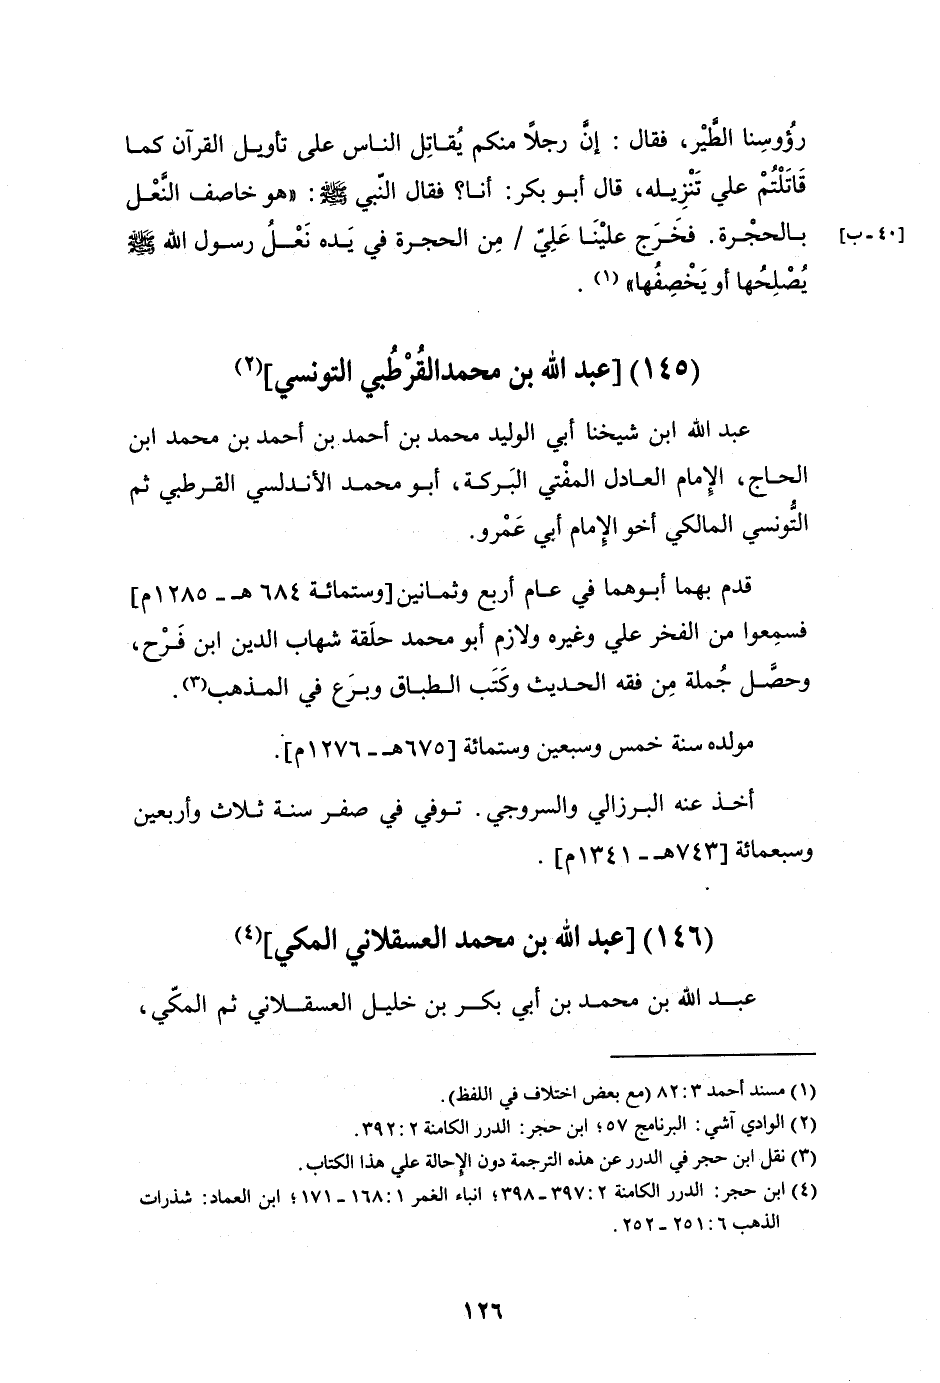 رُؤوسِنا الطَّيْر، فقال : إنَّ رجلاً منكم يُقاتِل الناس على تأويل القرآن كما
قَاتَلْتُمْ علي تَنْزِيله، قال أبو بكر: أنا؟ فقال النّبي ﷺ: «هو خاصف النَّعْل
بالحجْرة. فخَرَج عليْنَا عَلِيّ / مِن الحجرة في يَده نَعْلُ رسول الله ﷺ [٤٠-ب]
يُصْلِحُها أو يَخْصِفُها» (١) .
(١٤٥) [عبد الله بن محمدالقُرْطُبي التونسي](٢)
عبد الله ابن شيخنا أبي الوليد محمد بن أحمد بن أحمد بن محمد ابن
الحاج، الإمام العادل المفْتي البَركة، أبو محمد الأندلسي القرطبي ثم
التُّونسي المالكي أخو الإمام أبي عَمْرو.
قدم بهما أبوهما في عام أربع وثمانين[وستمائة ٦٨٤ هـ ـ ١٢٨٥م]
فسمِعوا من الفخر علي وغيره ولازم أبو محمد حلَقة شهاب الدين ابن فَرْح،
وحصَّل جُملة مِن فقه الحديث وكَتَب الطباق وبرَع في المذهب(٣).
مولده سنة خمس وسبعين وستمائة [٦٧٥هـ ـ ١٢٧٦م].
أخذ عنه البرزالي والسروجي. توفي في صفر سنة ثلاث وأربعين
وسبعمائة [٧٤٣هـ ـ ١٣٤١م] .
(١٤٦) [عبد الله بن محمد العسقلاني المكي](٤)
عبد الله بن محمد بن أبي بكر بن خليل العسقلاني ثم المكّي،
(١) مسند أحمد ٣: ٨٢ (مع بعض اختلاف في اللفظ).
(٢) الوادي آشي: البرنامج ٥٧؛ ابن حجر: الدرر الكامنة ٢: ٣٩٢.
(٣) نقل ابن حجر في الدرر عن هذه الترجمة دون الإحالة علي هذا الكتاب.
(٤) ابن حجر: الدرر الكامنة ٢: ٣٩٧ـ٣٩٨؛ انباء الغمر ١: ١٦٨ـ١٧١؛ ابن العماد: شذرات
الذهب ٦: ٢٥١ـ٢٥٢.
١٢٦